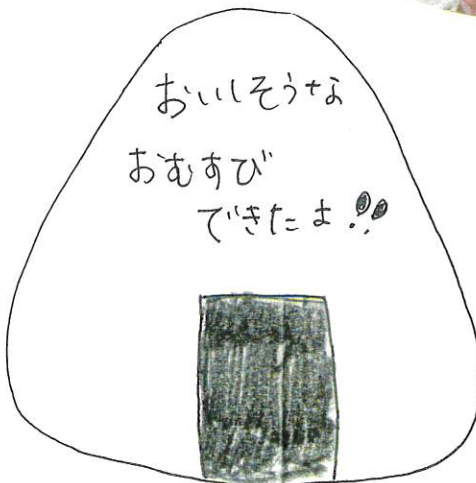 おいしそうな
おむすび
できたよ!!